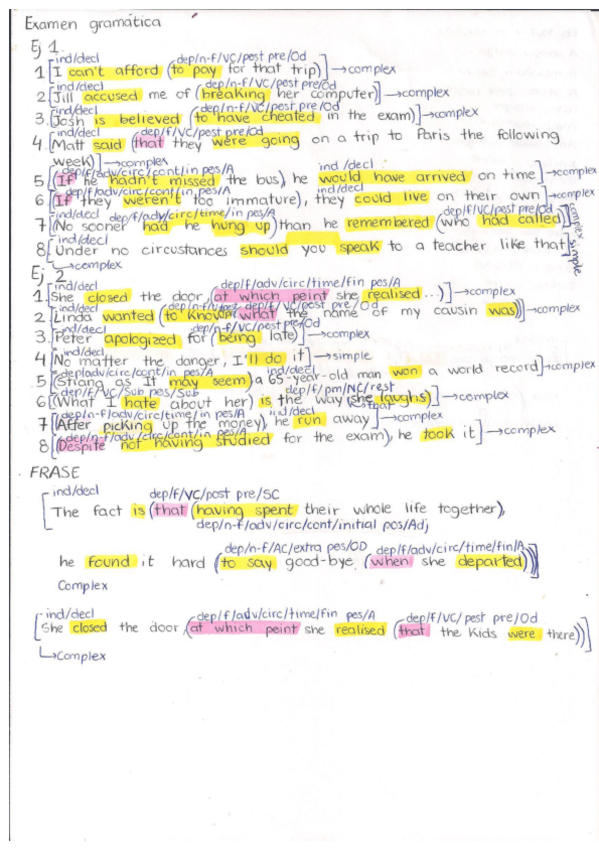 Examen gramática
Ej 1.
ind/decl dep/n-f/VC/post pre/Od
1 [I can't afford (to pay for that trip)] →complex
ind/decl dep/n-f/VC/post pre/Od
2 [Jill accused me of (breaking her computer)] →complex
ind/decl dep/n-f/VC/post pre/Od
3. [Josh is believed (to have cheated in the exam)] →complex
ind/decl dep/f/VC/post pre/Od
4. [Matt said (that they were going on a trip to Paris the following
week)] →complex
dep/f/adv/circ/cont/in pes/A ind/decl
5 [(If he hadn't missed the bus), he would have arrived on time] →complex
dep/f/adv/circ/cont/in pes/A ind/decl
6 [(If they weren't too immature), they could live on their own] →complex
ind/decl dep/f/adv/circ/time/in pes/A dep/f/VC/post pre/Od
7 [(No sooner had he hung up) than he remembered (who had called)] complex
ind/decl
8 [Under no circustances should you speak to a teacher like that] simple
→complex
Ej 2
ind/decl dep/f/adv/circ/time/fin pos/A
1. [She closed the door, (at which point she realised ...)] →complex
ind/decl dep/n-f/V/post dep/f/VC/post pre/Od
2 [Linda wanted (to know (what the name of my causin was))] →complex
ind/decl dep/n-f/VC/post pre/Od
3. [Peter apologized for (being late)] →complex
ind/decl
4 [No matter the danger, I'll do it] →simple
dep/adv/circ/cont/in pes/A ind/decl
5 [(Strang as It may seem) a 65-year-old man won a world record] →complex
dep/f/VC/sub pes/Sub dep/f/pm/NC/rest
6 [(What I hate about her) is the way (she laughs)] →complex
that
dep/n-f/adv/circ/time/in pes/A ind/decl
7 [(After picking up the money), he run away] →complex
dep/n-f/adv/circ/cont/in pes/A
8 [(Despite not having studied for the exam), he took it] →complex
FRASE
ind/decl dep/f/VC/post pre/SC
[The fact is (that (having spent their whole life together),
dep/n-f/adv/circ/cont/initial pos/Adj
dep/n-f/AC/extra pes/OD dep/f/adv/circ/time/fin/A
he found it hard (to say good-bye (when she departed)))]
Complex
ind/decl dep/f/adv/circ/time/fin pes/A dep/f/VC/post pre/Od
[She closed the door, (at which point she realised (that the kids were there))]
↳Complex